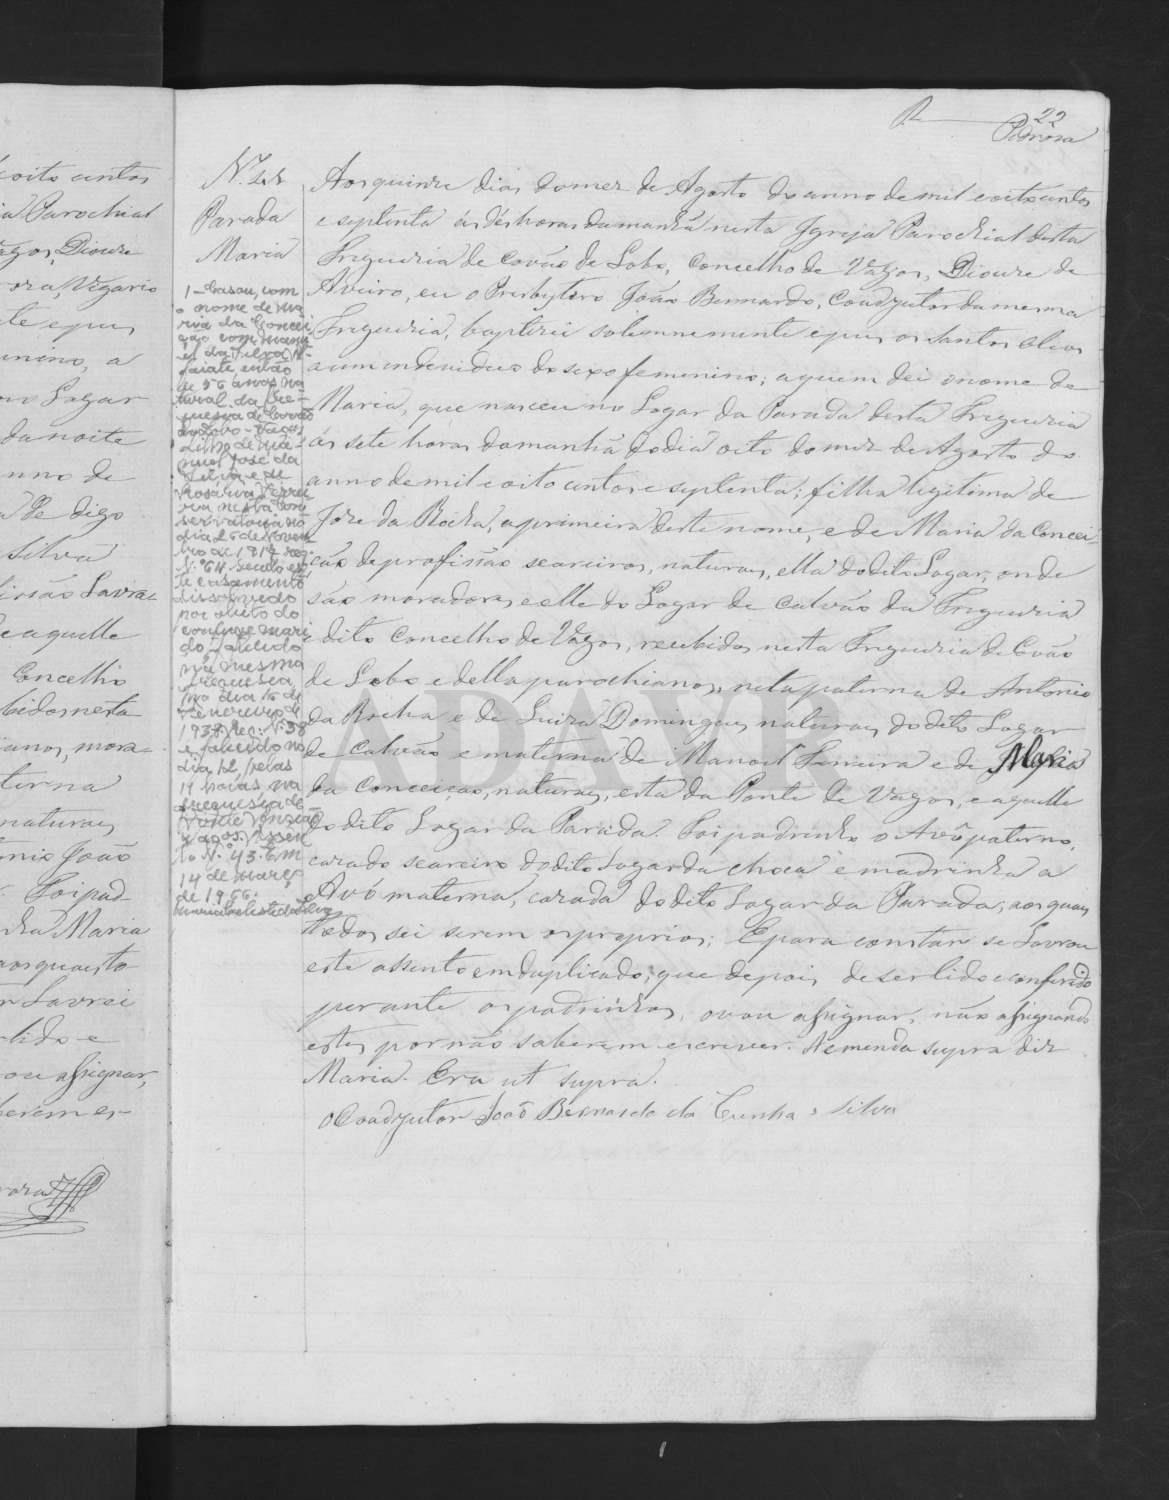 22
Pedrosa
Parada
Maria
Aos quinze dias do mez de Agosto do anno de mil e oitocentos
e septenta ás dés horas da manhã nesta Igreja Parochial desta
Freguezia de Covão de Lobo, Concelho de Vagos, Diocese de
Aveiro, eu o Presbytero João Bernardo, Coadjutor da mesma
Freguezia, baptizei solemnemente e puz os santos oleos
a um individuo do sexo femenino; a quem dei o nome de
Maria, que nasceu no Logar da Parada desta Freguezia
ás sete horas da manhã do dia oito do mez de Agosto do
anno de mil e oitocentos e septenta; filha legitima de
José da Rocha, a primeira deste nome, e de Maria da Concei-
ção de profissão seareiros, naturaes, ella do dito Logar, onde
são moradores e elle do Logar de Calvão da Freguezia
e dito Concelho de Vagos, recebidos nesta Freguezia de Covão
de Lobo e della parochianos, neta paterna de Antonio
da Rocha e de Luiza Domingues, naturaes do dito Logar
de Calvão e materna de Manoel Ferreira e de Maria
da Conceição, naturaes, esta da Ponte de Vagos, e aquelle
do dito Logar da Parada. Foi padrinho o Avô paterno,
casado seareiro do dito Logar da Choca e madrinha a
Avó materna, casada do dito Logar da Parada; aos quaes
todos sei serem os proprios; E para constar se Lavrou
este assento em duplicado; que depois de ser lido e conferido
perante os padrinhos, o vou assignar, não assignando
estes por não saberem escrever. A emenda supra diz
Maria. Era ut supra.
O Coadjutor João Bernardo da Cunha e Silva
1-Casou, com
o nome de Ma
ria da Concei
ção com Manu
el da Silva Al-
faiate então
de 56 anos na
tural da Fre-
guesia de Covão
do Lobo - Vagos
filho de Ma-
nuel José da
Silva e de
Rosalina Ferrei
ra nesta Con
servatória no
dia 25 de Novem
bro de 1914 reg.
N.º 64. Sendo es
te casamento
dissolvido
por obito do
conjuge mari
do falecido
na mesma
freguesia,
no dia 15 de
Fevereiro de
193
e falecido no
dia 12, pelas
19 horas, na
freguesia de
Vagos, Assen
to N.º 43. Em
14 de Março
de 1956.
ADAVR
coito centos
ia Parochial
agos, Diocese
ora, Vigario
Logar
da noite
anno de
Silva
fissão Lavra-
e aquelle
Concelho
bidos nesta
ianos, mora-
terna
naturaes
onio João
Foi pad-
nha Maria
aos quaes to-
r Lavrei
lido e
ou assignar,
berem es-